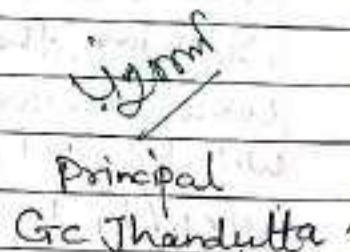 Principal
GC Jhandutta